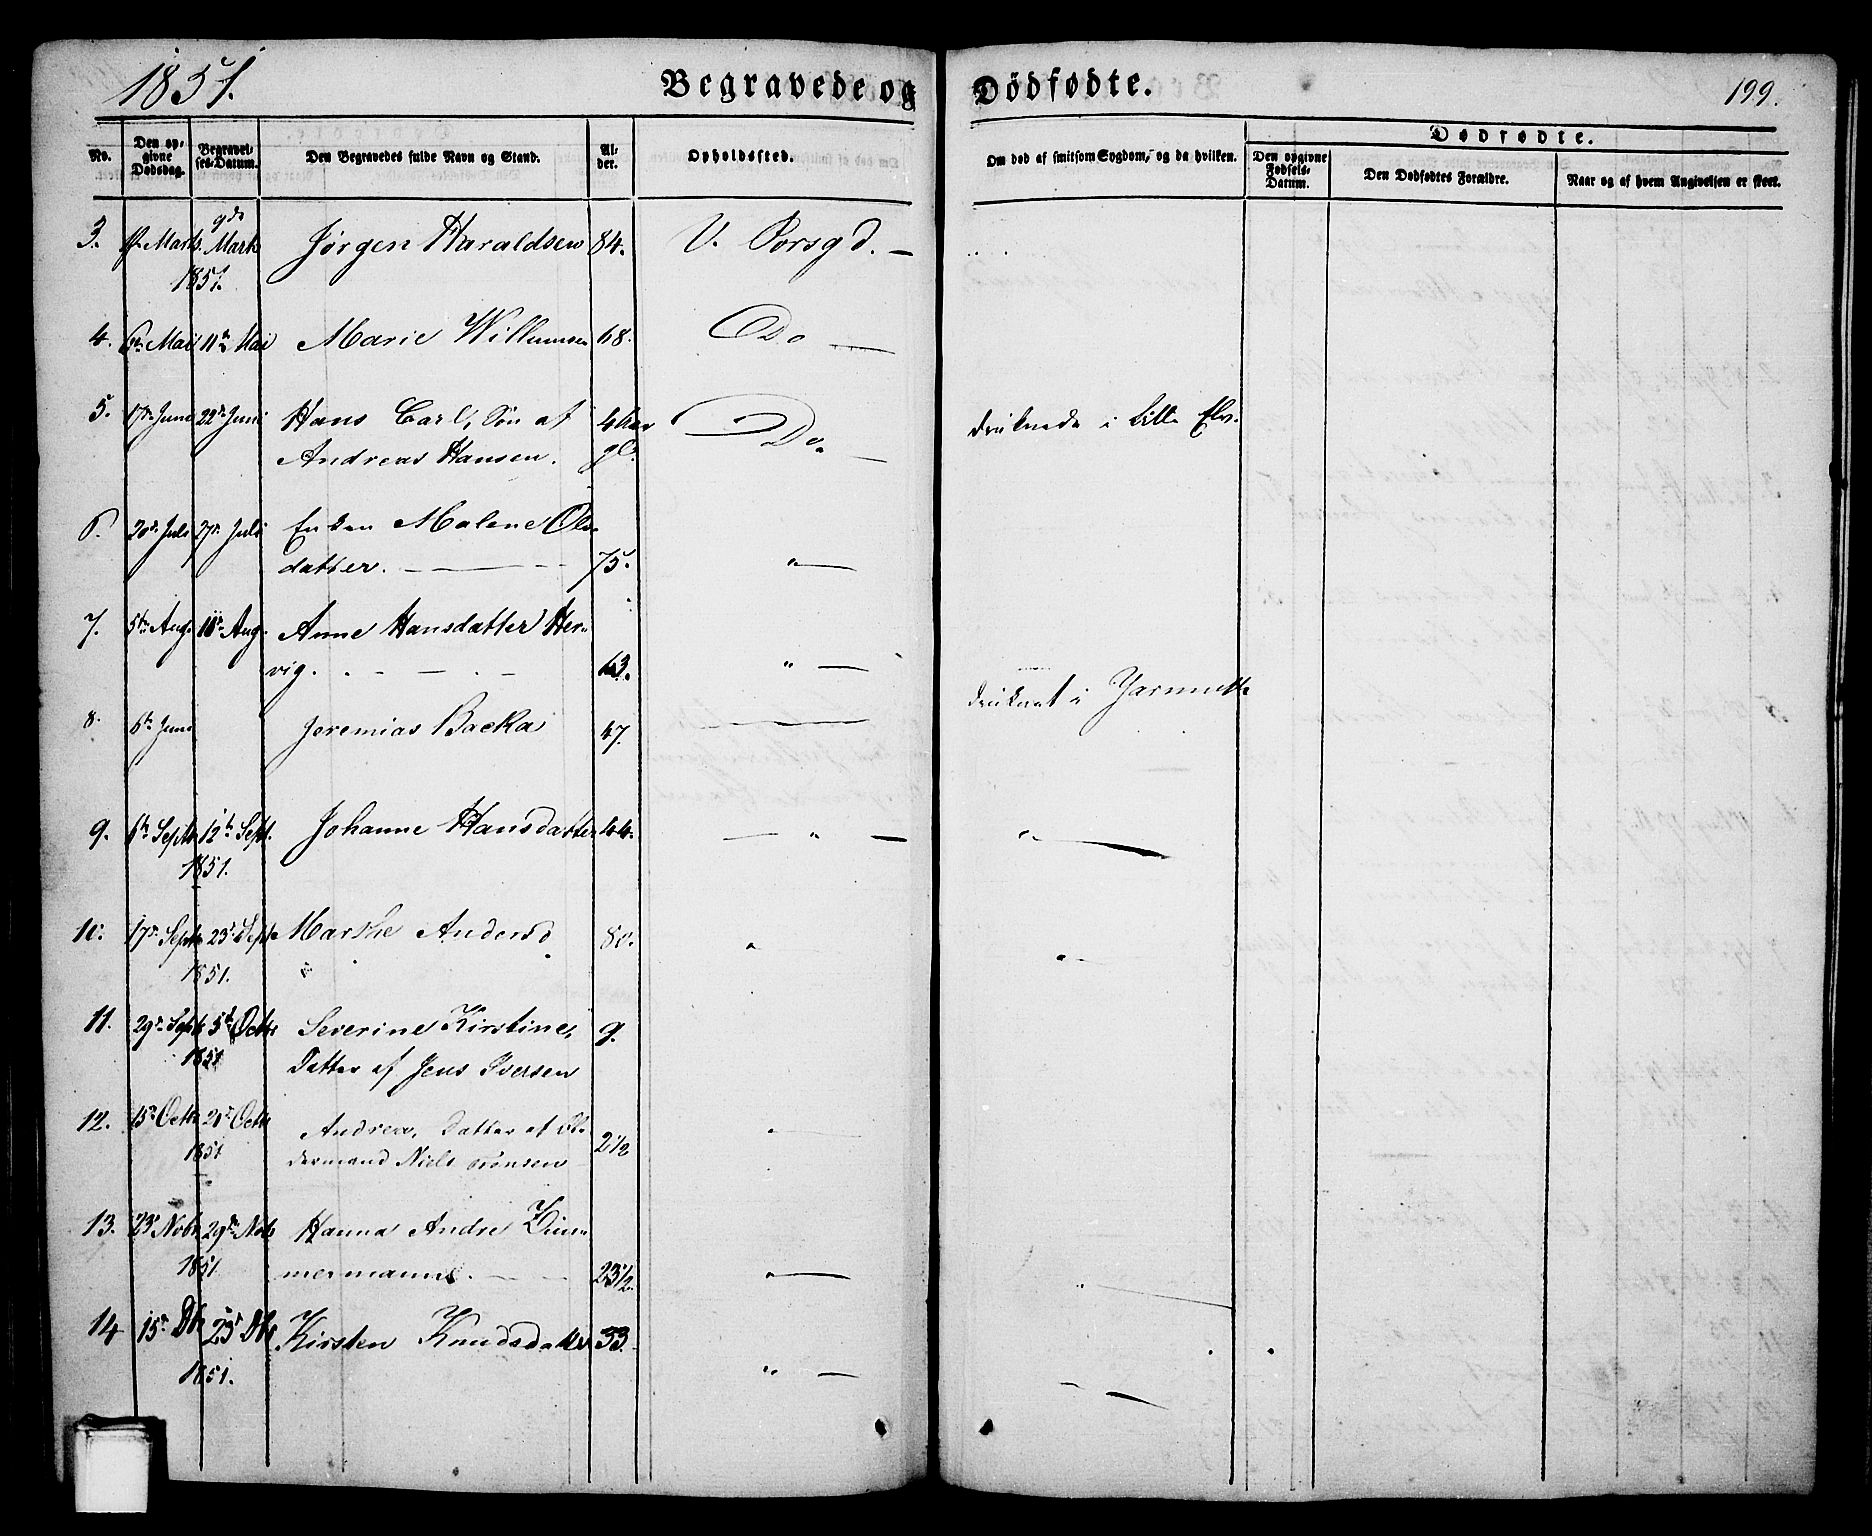 1851. Begravede og Dödfödte. 199.
No. Den opgivne Dødsdag. Begravelses-Datum. Den Begravedes fulde Navn og Stand. Alder. Opholdssted. Om død af smitsom Sygdom, og da hvilken. Dødfødte.
Den opgivne Fødsels-Datum. Den Dødfødtes Forældre. Naar og af hvem Angivelsen er skeet.
3. Marts 9de Marts 1851. Jørgen Haraldsen 84. V. Porsgd. —
4. 6te Mai 11te Mai Marie Willumsen 68. Do —
5. 17de Juni 22de Juni Hans Carl, Søn af 4 Aar druknede i Lille Elv.
Andreas Hansen. gl. Do —
6. 20de Juli 27de Juli Enken Malene Ols-
datter. — 75. " —
7. 5te Aug. 10de Aug. Anne Hansdatter Her-
vig. — 63. " —
8. 6te Juni Jeremias Backa 47. — druknet i Yarmuth
9. 6te Septb 12te Sept. Johanne Hansdatter 44. — " — " —
1851.
10. 17de Septb 23de Septb Marthe Andersd 80. " "
1851.
11. 29de Septb 5te Octbr Severine Kirstine, 9.
1851 Datter af Jens Iversen
12. 15de Octbr 20de Octbr Andrea, Datter af Ol-
1851 dermand Niels 2 1/2 " —
13. 23de Nobr 29de Nobr Hanna Andre Zim-
1851 mermann. — 23 1/2. " — "
14 15de Dbr 23de Dbr Kirsten Knudsdatter 33.
1851. " —